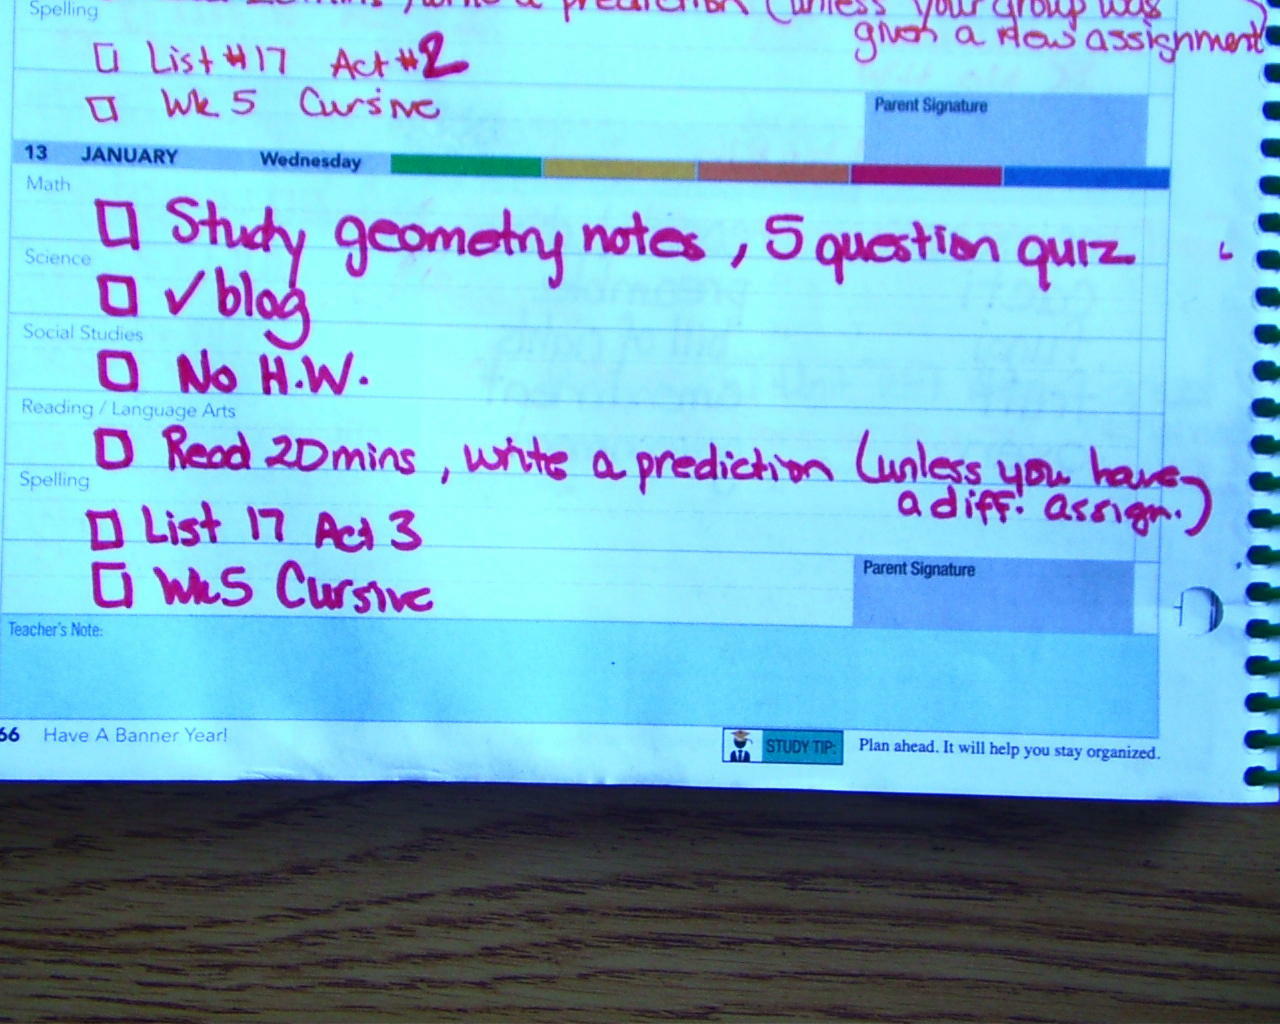 Spelling
mins, write a prediction (unless your group was
given a new assignment
List #17 Act #2
Wk 5 Cursive
Parent Signature
13 JANUARY Wednesday
Math
Study geometry notes, 5 question quiz
Science
✓ blog
Social Studies
No H.W.
Reading / Language Arts
Read 20 mins, write a prediction (unless you have
a diff. assign.)
Spelling
List 17 Act 3
Wk 5 Cursive
Parent Signature
Teacher's Note:
66 Have A Banner Year!
STUDY TIP: Plan ahead. It will help you stay organized.